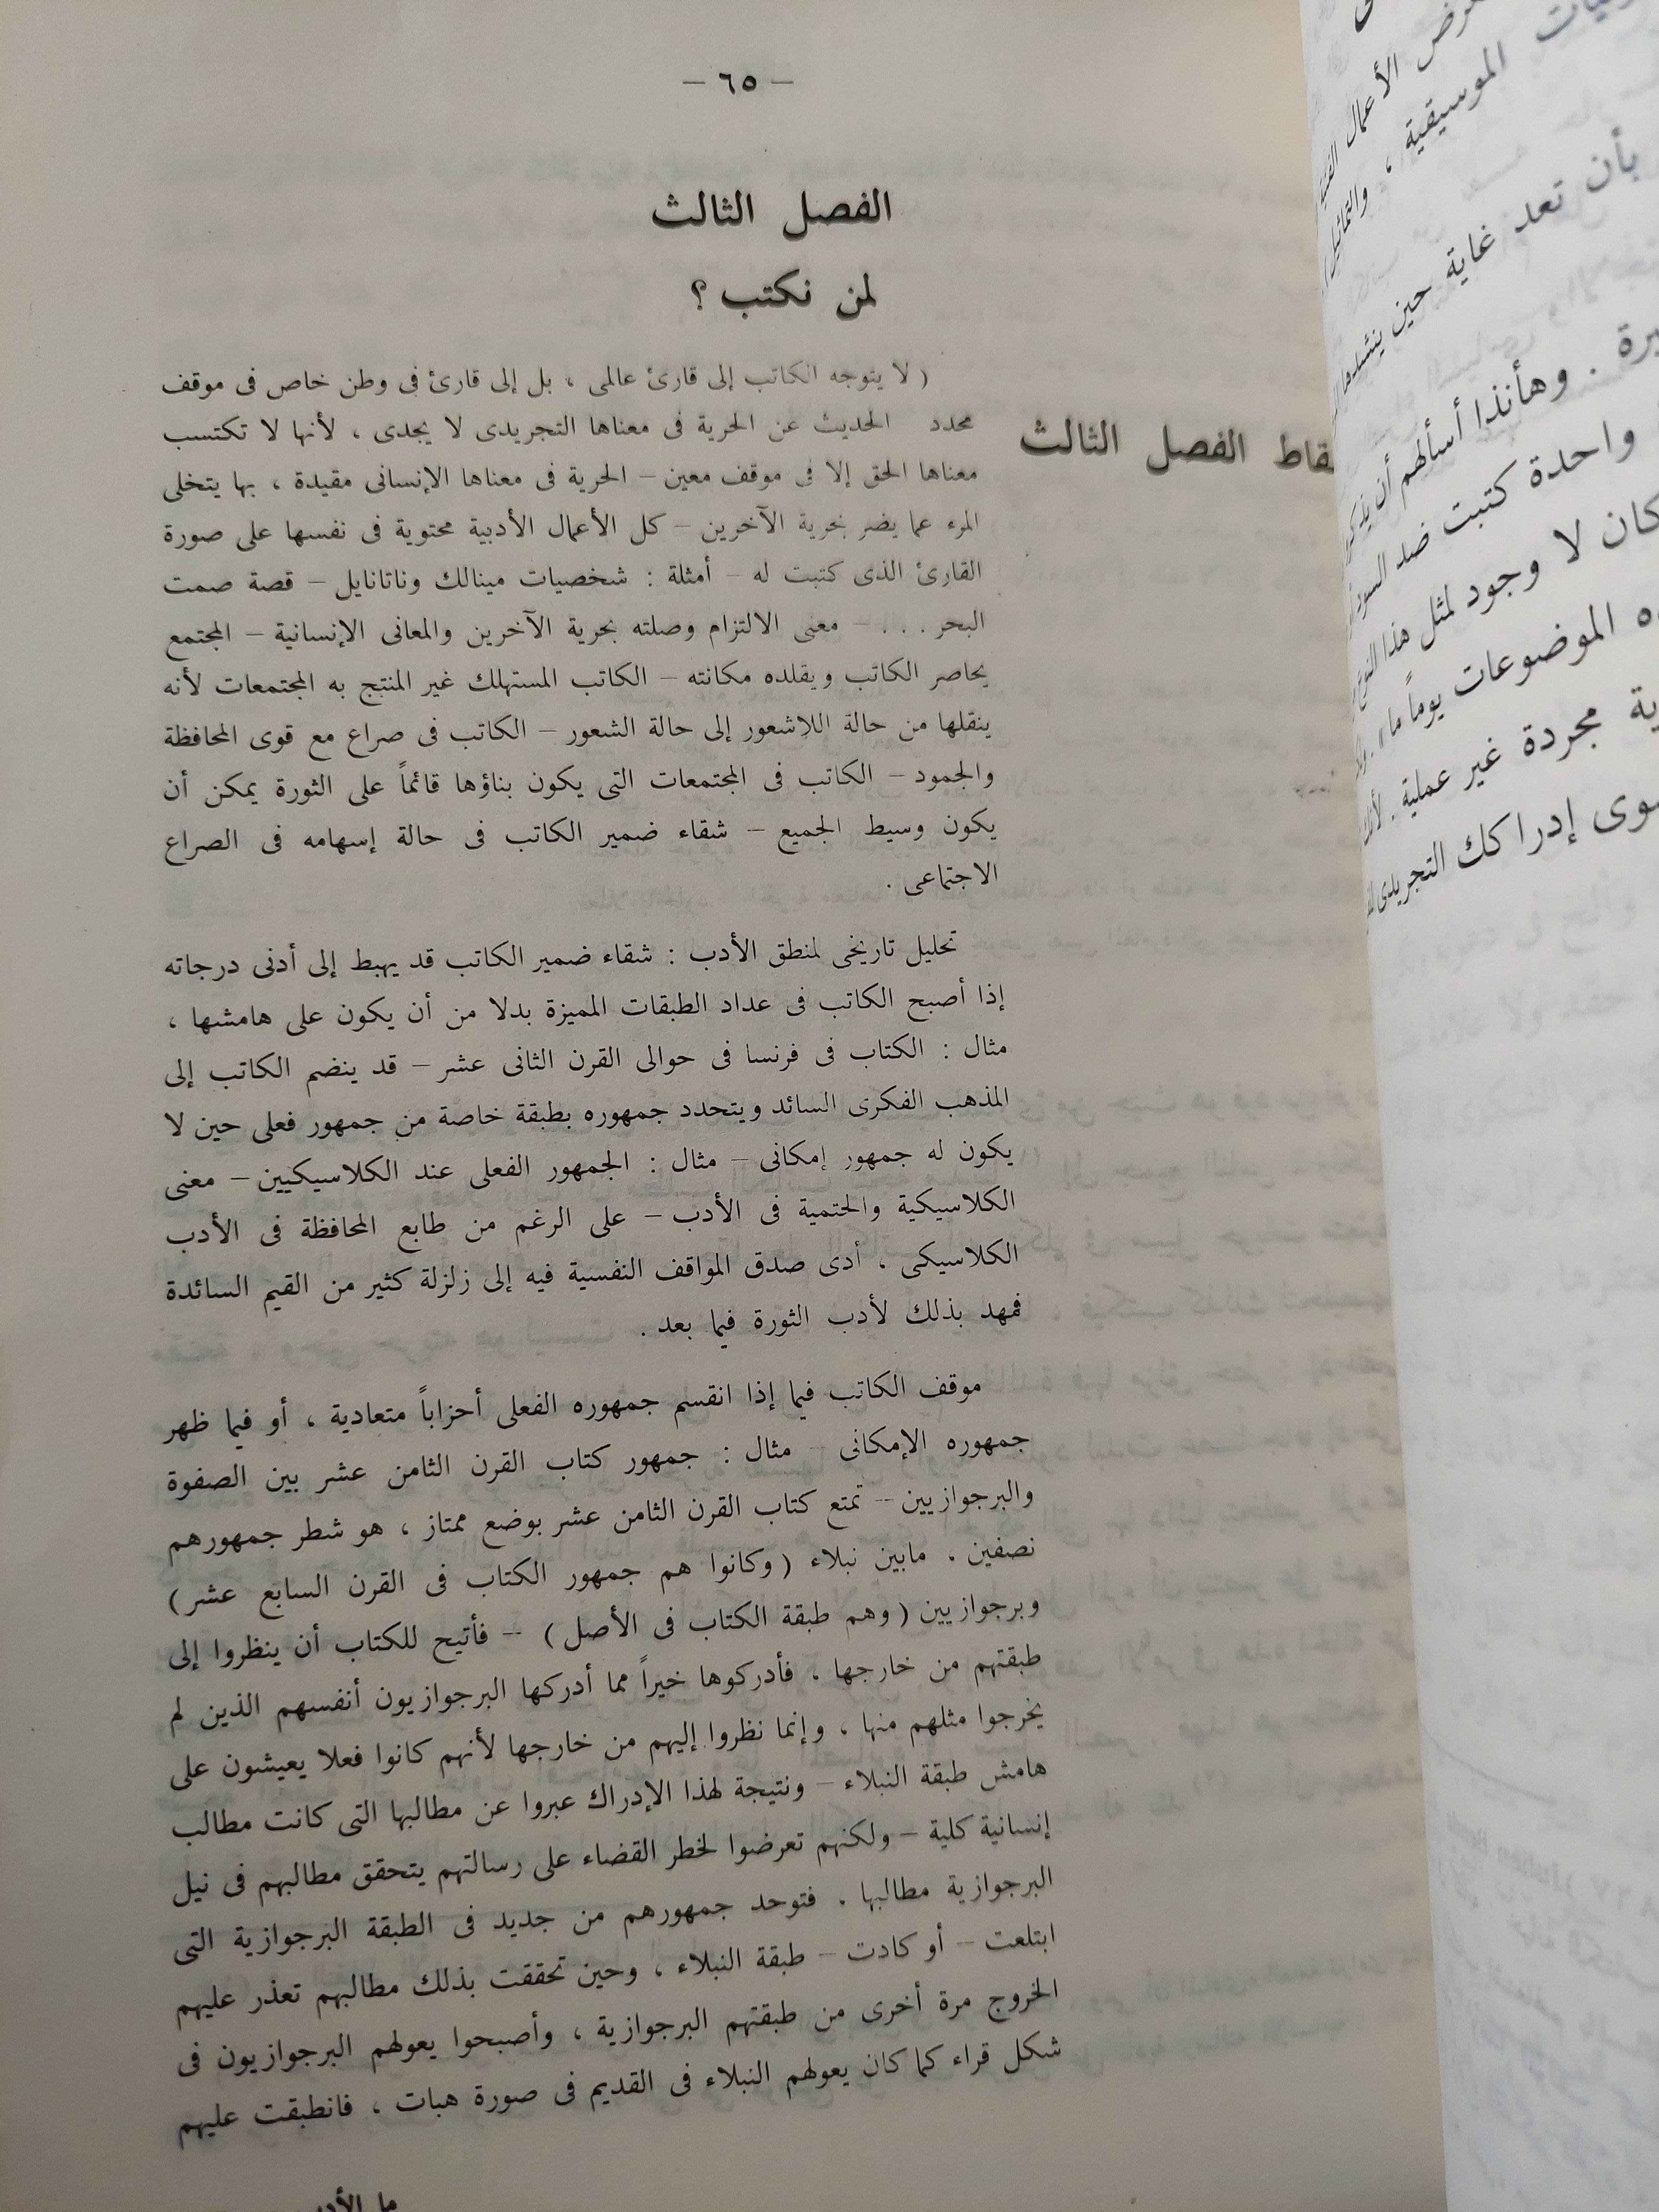 — ٦٥ —
الفصل الثالث
لمن نكتب ؟
نقاط الفصل الثالث
( لا يتوجه الكاتب إلى قارئ عالمى ، بل إلى قارئ فى وطن خاص فى موقف
محدد الحديث عن الحرية فى معناها التجريدى لا يجدى ، لأنها لا تكتسب
معناها الحق إلا فى موقف معين – الحرية فى معناها الإنسانى مقيدة ، بها يتخلى
المرء عما يضر بحرية الآخرين – كل الأعمال الأدبية محتوية فى نفسها على صورة
القارئ الذى كتبت له – أمثلة : شخصيات مينالك وناتانايل – قصة صمت
البحر . . . – معنى الالتزام وصلته بحرية الآخرين والمعانى الإنسانية – المجتمع
يحاصر الكاتب ويقلده مكانته – الكاتب المستهلك غير المنتج به المجتمعات لأنه
ينقلها من حالة اللاشعور إلى حالة الشعور – الكاتب فى صراع مع قوى المحافظة
والجمود – الكاتب فى المجتمعات التى يكون بناؤها قائماً على الثورة يمكن أن
يكون وسيط الجميع – شقاء ضمير الكاتب فى حالة إسهامه فى الصراع
الاجتماعى .
تحليل تاريخى لمنطق الأدب : شقاء ضمير الكاتب قد يهبط إلى أدنى درجاته
إذا أصبح الكاتب فى عداد الطبقات المميزة بدلا من أن يكون على هامشها ،
مثال : الكتاب فى فرنسا فى حوالى القرن الثانى عشر – قد ينضم الكاتب إلى
المذهب الفكرى السائد ويتحدد جمهوره بطبقة خاصة من جمهور فعلى حين لا
يكون له جمهور إمكانى – مثال : الجمهور الفعلى عند الكلاسيكيين – معنى
الكلاسيكية والحتمية فى الأدب – على الرغم من طابع المحافظة فى الأدب
الكلاسيكى ، أدى صدق المواقف النفسية فيه إلى زلزلة كثير من القيم السائدة
فمهد بذلك لأدب الثورة فيما بعد .
موقف الكاتب فيما إذا انقسم جمهوره الفعلى أحزاباً متعادية ، أو فيما ظهر
جمهوره الإمكانى – مثال : جمهور كتاب القرن الثامن عشر بين الصفوة
والبرجوازيين – تمتع كتاب القرن الثامن عشر بوضع ممتاز ، هو شطر جمهورهم
نصفين . مابين نبلاء ( وكانوا هم جمهور الكتاب فى القرن السابع عشر )
وبرجوازيين ( وهم طبقة الكتاب فى الأصل ) – فأتيح للكتاب أن ينظروا إلى
طبقتهم من خارجها . فأدركوها خيراً مما أدركها البرجوازيون أنفسهم الذين لم
يخرجوا مثلهم منها ، وإنما نظروا إليهم من خارجها لأنهم كانوا فعلا يعيشون على
هامش طبقة النبلاء – ونتيجة لهذا الإدراك عبروا عن مطالبها التى كانت مطالب
إنسانية كلية – ولكنهم تعرضوا لخطر القضاء على رسالتهم يتحقق مطالبهم فى نيل
البرجوازية مطالبها . فتوحد جمهورهم من جديد فى الطبقة البرجوازية التى
ابتلعت – أو كادت – طبقة النبلاء ، وحين تحققت بذلك مطالبهم تعذر عليهم
الخروج مرة أخرى من طبقتهم البرجوازية ، وأصبحوا يعولهم البرجوازيون فى
شكل قراء كما كان يعولهم النبلاء فى القديم فى صورة هبات ، فانطبقت عليهم
ما الأدب
الأعمال الفنية
الموسيقية ، والتماثيل
بأن تعد غاية حين ينشدها
. وهأنذا أسألهم أن
واحدة كتبت ضد
كان لا وجود لمثل هذا النوع
الموضوعات يوماً ما
مجردة غير عملية .
سوى إدراكك التجريدى